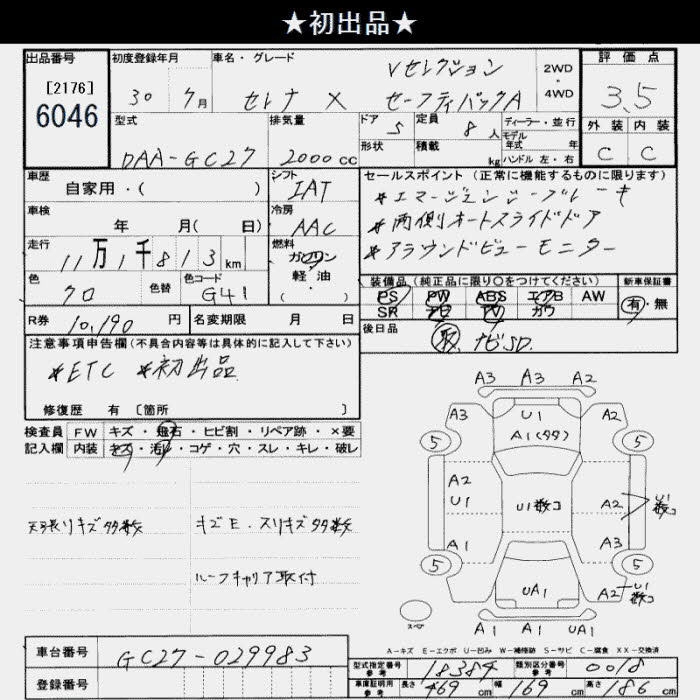 ★初出品★
出品番号
[2176]
6046
初度登録年月
30年 7月
車名・グレード
Vセレクション
セレナ X セーフティパックA
2WD
・
4WD
評価点
3.5
外装 内装
C C
型式
DAA-GC27
排気量
2000cc
ドア
5
定員
8人
ディーラー・並行
モデル
年式 年
形状
積載 kg
ハンドル 左・右
車歴
自家用・( )
シフト
IAT
セールスポイント (正常に機能するものに限ります)
*エマージェンシーブレーキ
*両側オートスライドドア
*アラウンドビューモニター
車検
年 月( 日)
冷房
AAC
走行
11万1千813km
燃料
ガソリン
軽油
( ・ )
色
クロ
色替
色コード
G41
装備品 (純正品に限り○をつけてください)
PS PW ABS エアB AW
SR ナビ TV カワ
新車保証書
有・無
R券
10,190円
名変期限 月 日
後日品
取 ナビSD.
注意事項申告欄(不具合内容等は具体的に記入して下さい)
*ETC *初出品
修復歴 有 [箇所 ]
検査員
記入欄
FW キズ・飛石・ヒビ割・リペア跡・×要
内装 キズ・汚れ・コゲ・穴・スレ・キレ・破レ
天張りキズ多数
キズE.スリキズ多数
ルーフキャリア取付
A3 A3 A2
A3 U1 A2
A1(多々)
5 5
A2
U1
U1数コ
A2
U1
数コ
A1 A3
5 5
UA1
A2
U1
数コ
スペア
A1 A1 UA1
A-キズ E-エクボ U-凹み W-補修跡 S-サビ C-腐食 XX-交換済
車台番号
GC27-029983
登録番号
型式指定番号
参考
18384
類別区分番号
参考
0018
車庫証明用
参考
長さ 469cm 幅 169cm 高さ 186cm